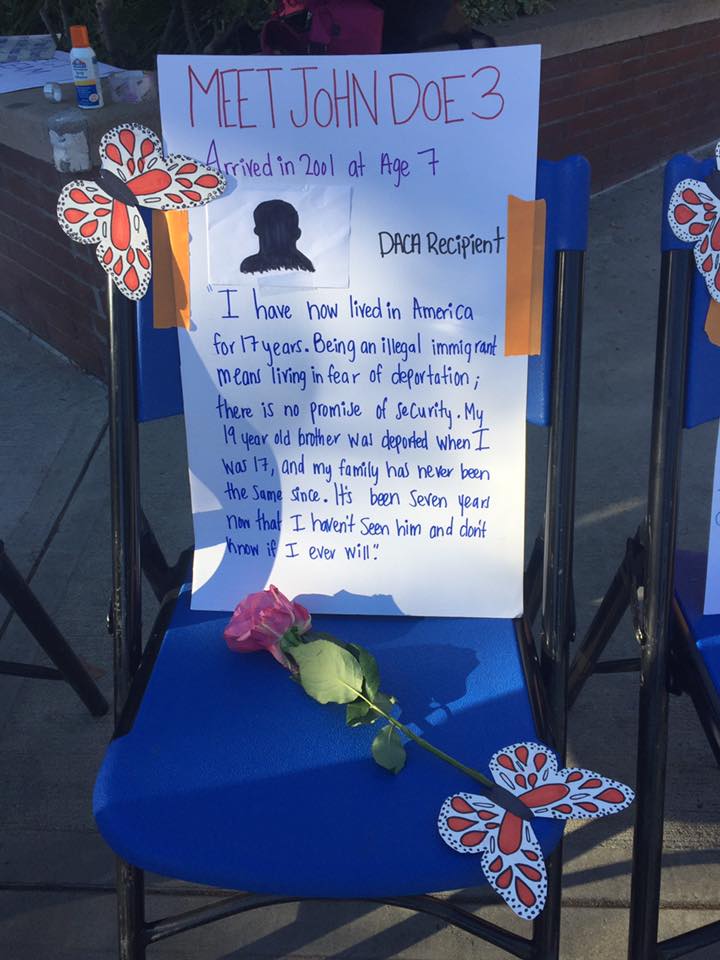 MEET JOHN DOE 3
Arrived in 2001 at Age 7
DACA Recipient
"I have now lived in America
for 17 years. Being an illegal immigrant
means living in fear of deportation;
there is no promise of security. My
19 year old brother was deported when I
was 17, and my family has never been
the same since. It's been seven years
now that I haven't seen him and don't
know if I ever will."